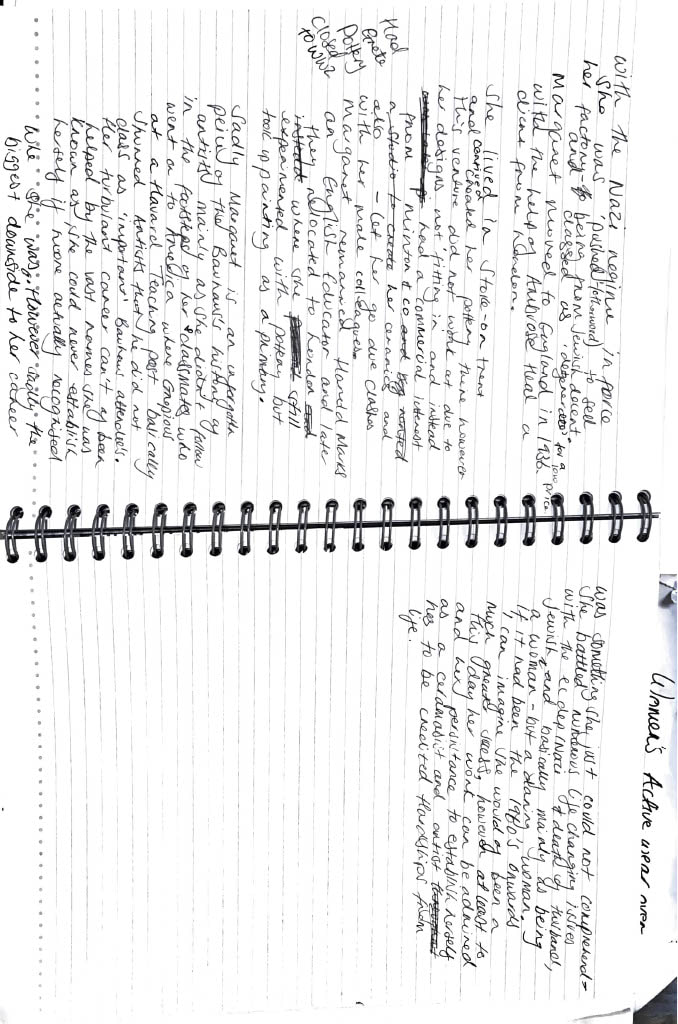 with the Nazi regime in force
she was 'pushed' (otherword) to sell
her factory - for a low price
and to being from Jewish decent -
classed as 'degenerates'
Margaret moved to England in 1936
with the help of Ambrose Heal a
client from London.
She lived in Stoke-on trent
and continued created her pottery there however
this venture did not work out due to
her designs not fitting in and instead
from Minton & co and
had a commercial interest
a studio to create her ceramics and
also - let her go due clashes
with her male colleagues
Margaret remarried Harold Marks
an English Educator and later
they relocated to London and
instead where she still
experimented with pottery but
took up painting as a primary.
Had
Greta
Pottery
closed
to WW2
Sadly Margaret is an unforgotten
peice of the Bauhaus history of
artists mainly as she didn't follow
in the footsteps of her classmates who
went on to America where Gropious
at a Havard Teaching post basically
shunned Artists that he did not
class as 'important' Bauhaus attendee's.
Her turbulant career can't of been
helped by the vast names she was
known as she could never establish
herself if noone actually recognised
who she was. However sadly the
biggest downside to her career
Women's Active wear
was something she just could not comprehend -
she battled numorous life changing issues
with the Nazi & death of husband,
Jewish & and basically mainly as being
a woman - but a daring woman.
If it had been the 1980's onwards
I can imagine she would of been a
much greater sucess, however at least to
this day her work can be admired
and her persistance to establish herself
as a ceramasist and artist
has to be credited Hardships from
life.